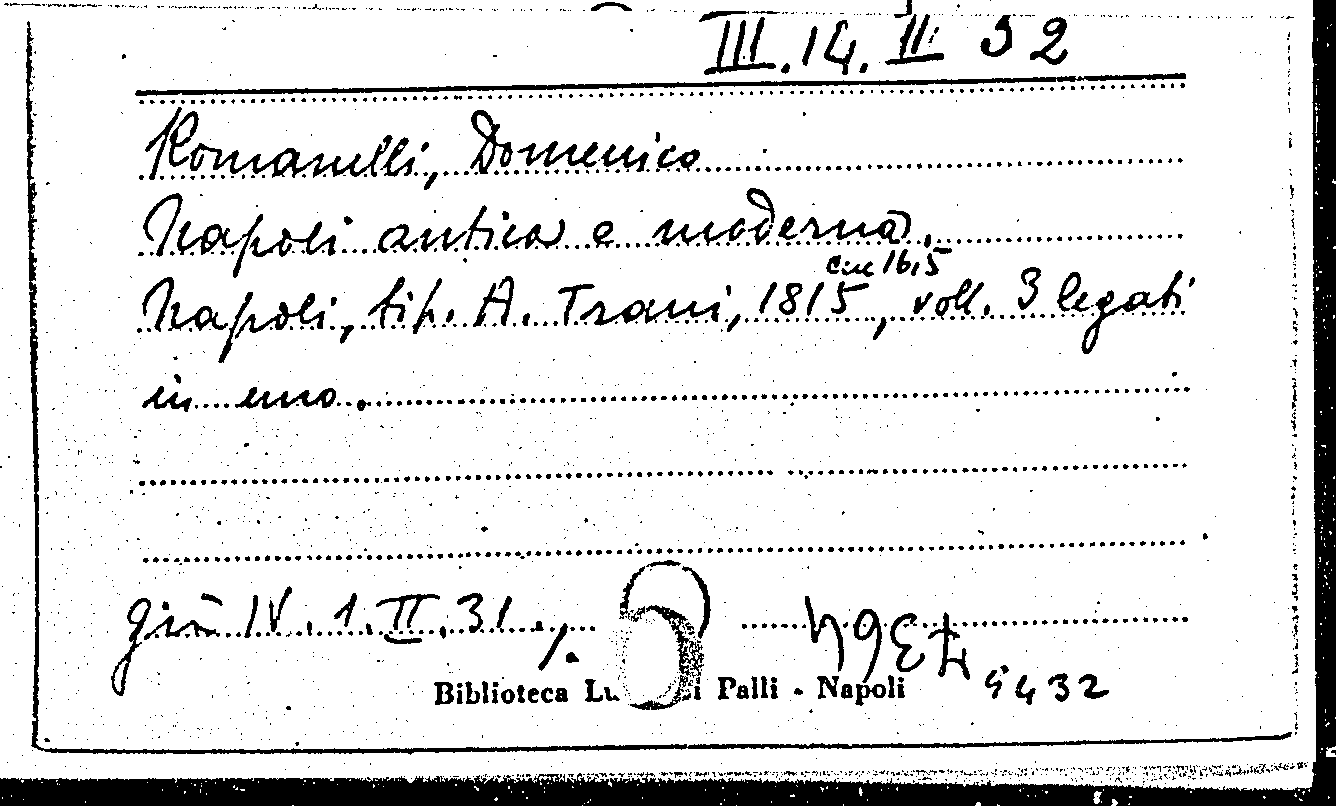 III.14.II 32
Romanelli, Domenico
Napoli antica e moderna.
cm 16,5
Napoli, tip. A. Trani, 1815, voll. 3 legati
in uno.
già IV.1.II.31./.
7364
Biblioteca Palli - Napoli
5432